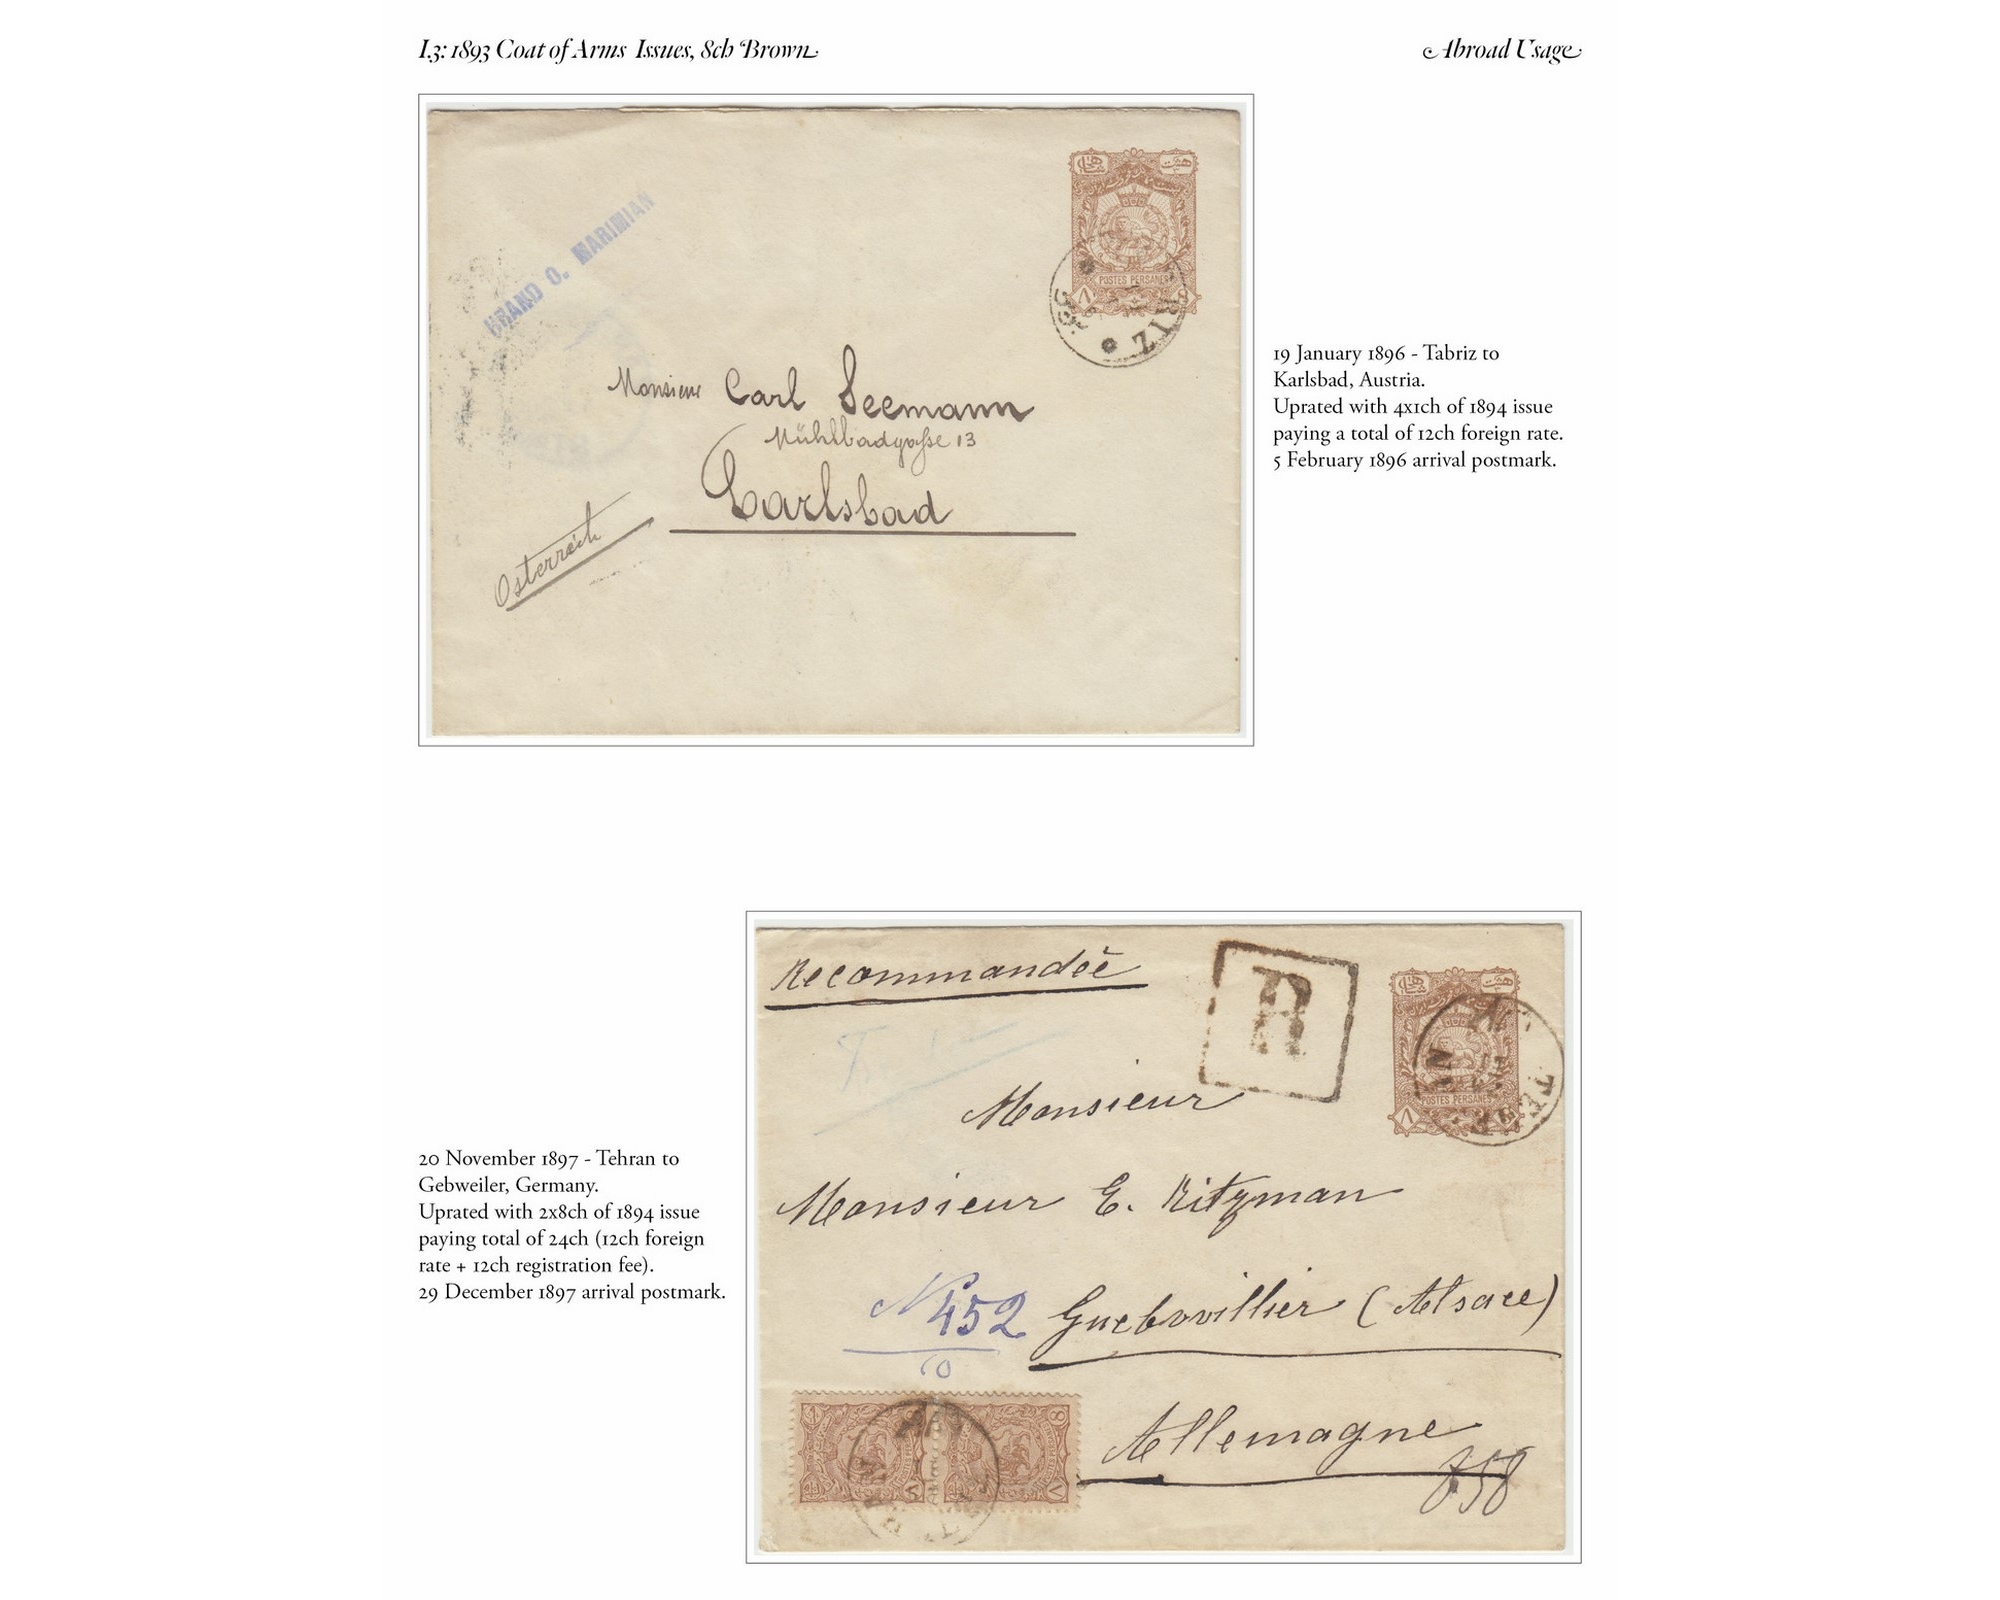 I.3: 1893 Coat of Arms Issues, 8ch Brown
Abroad Usage
HRAND O. MARIMIAN
POSTES PERSANES
Monsieur Carl Seemann
Mühlbadgaße 13
Carlsbad
Osterreich
19 January 1896 - Tabriz to
Karlsbad, Austria.
Uprated with 4x1ch of 1894 issue
paying a total of 12ch foreign rate.
5 February 1896 arrival postmark.
Recommandée
R
هشت
POSTES PERSANES
Monsieur
Monsieur E. Ritzman
N 452
Guebwillier (Alsace)
Allemagne
858
20 November 1897 - Tehran to
Gebweiler, Germany.
Uprated with 2x8ch of 1894 issue
paying total of 24ch (12ch foreign
rate + 12ch registration fee).
29 December 1897 arrival postmark.